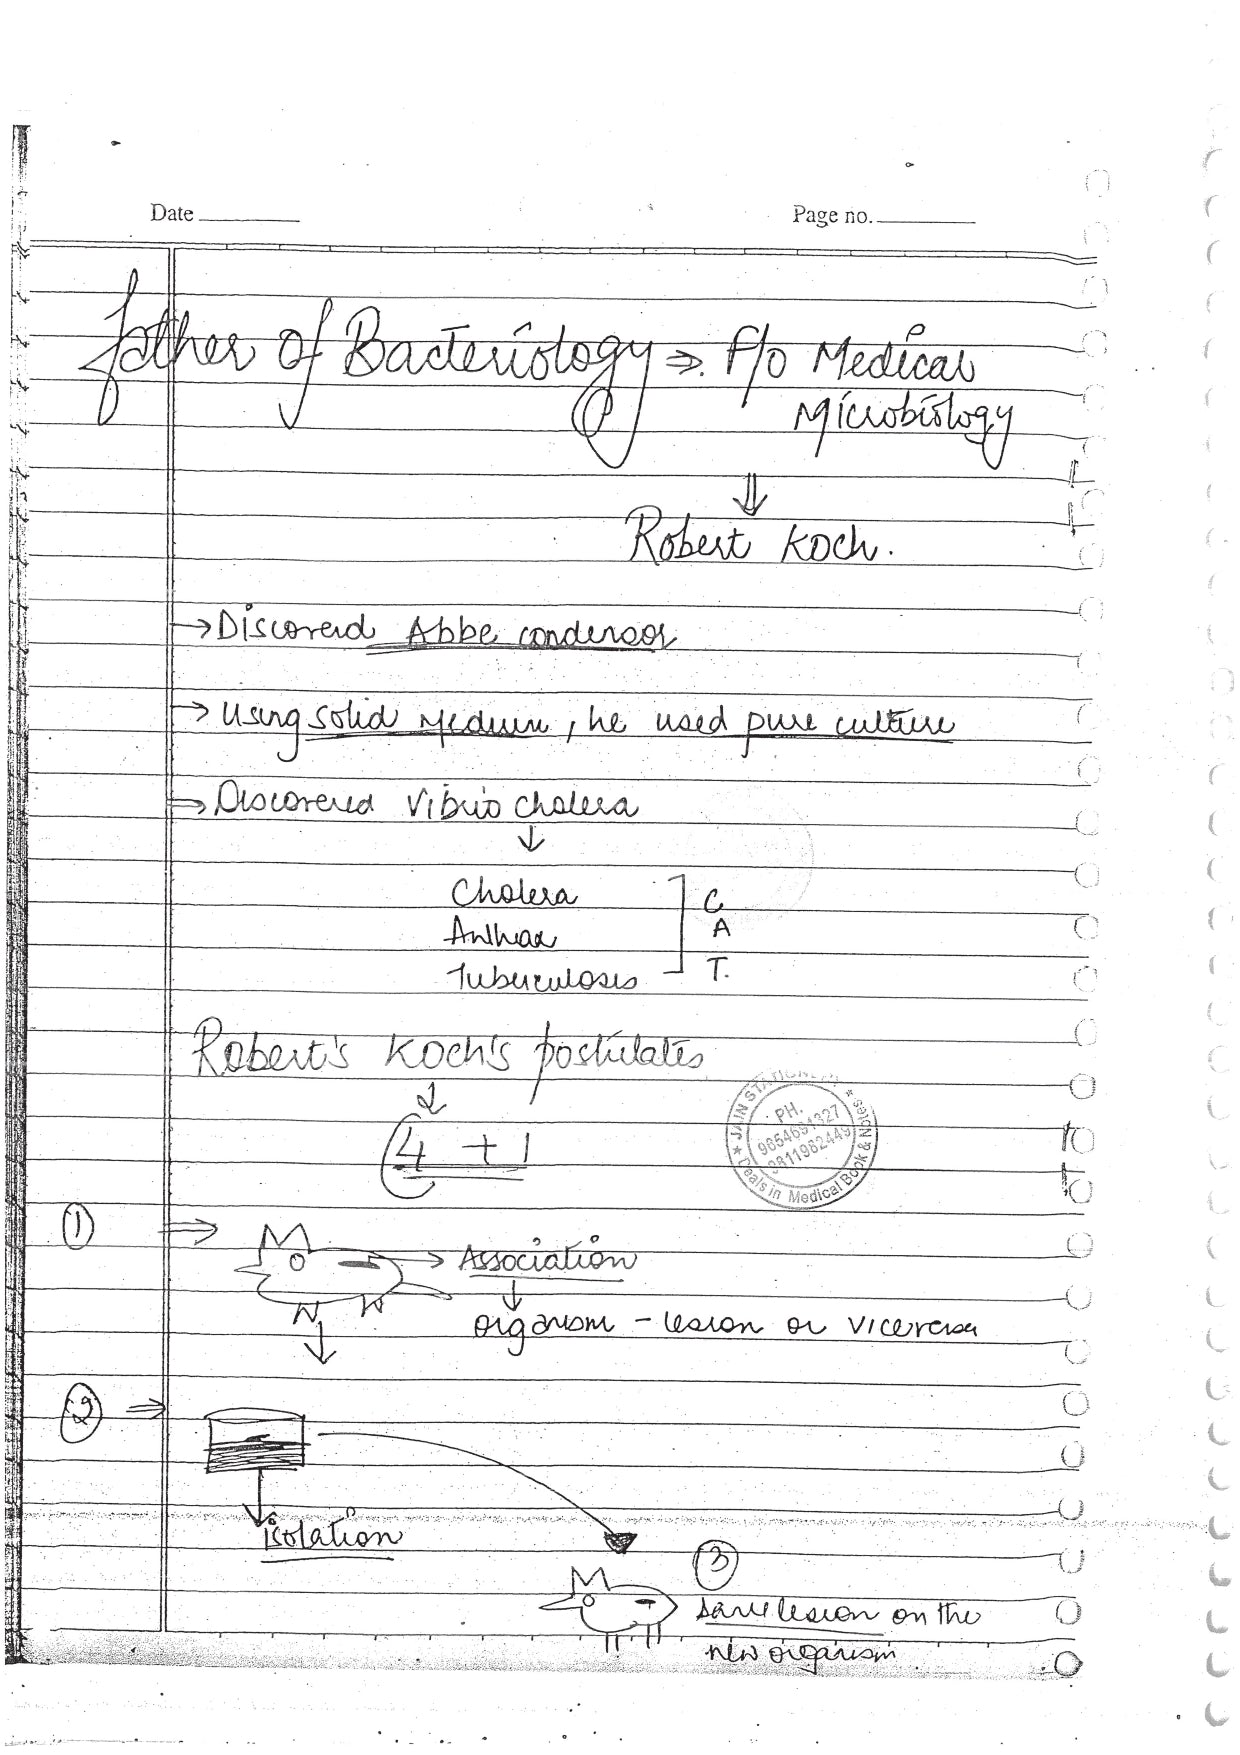 Date
Page no.
Father of Bacteriology ⇒ F/o Medical
Microbiology
⇓
Robert Koch.
→ Discovered Abbe condensor
→ Using solid medium, he used pure culture
⇒ Discovered Vibrio cholera
↓
Cholera C
Anthrax A
Tuberculosis T.
Robert's Koch's postulates
↓
4 + 1
JAIN STATIONERY
PH.
9811982449
Deals in Medical Book & Notes
① ⇒
→ Association
↓
organism - lesion or viceversa
② ⇒
isolation
③
same lesion on the
new organism